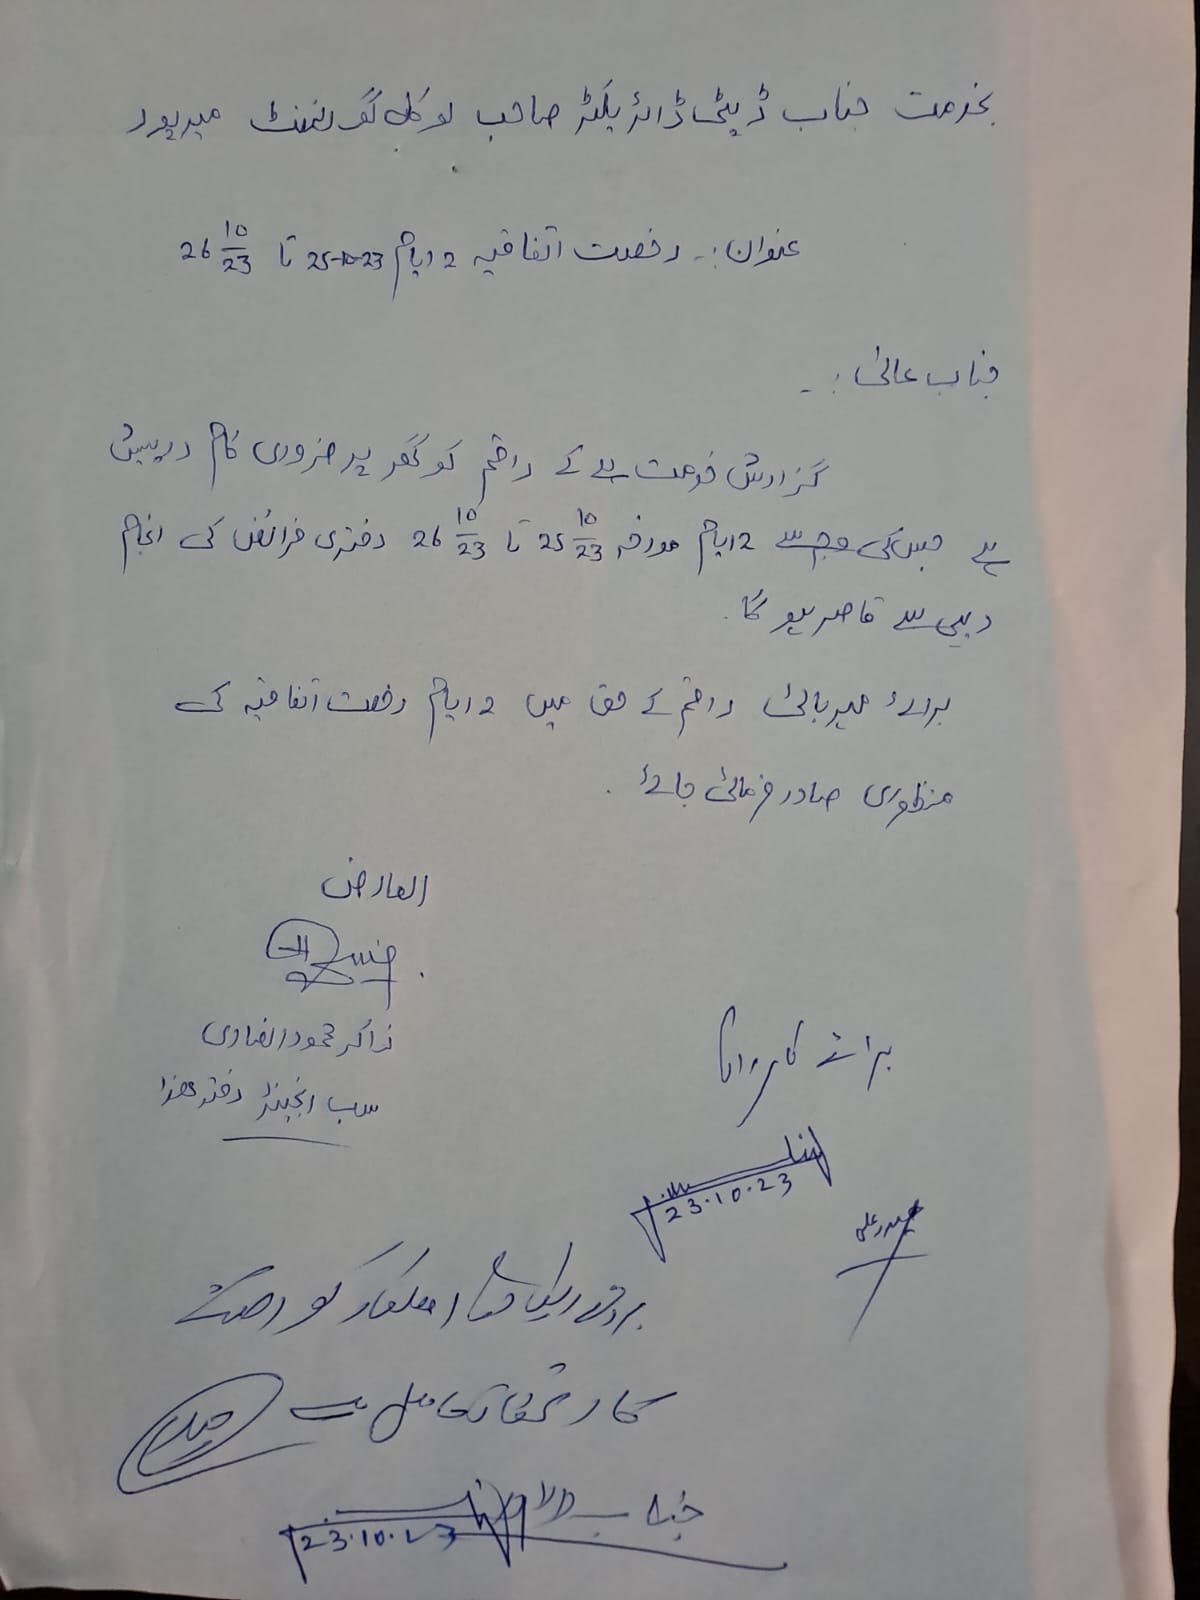 بخدمت جناب ڈپٹی ڈائریکٹر صاحب لوکل گورنمنٹ میرپور
عنوان:۔ رخصت اتفاقیہ 2 ایام 25-10-23 تا 26 10/23
جناب عالیٰ :۔
گزارش خدمت ہے کے راقم کو گھر پر ضروری کام درپیش
ہے جس کی وجہ سے 2 ایام مورخہ 25 10/23 تا 26 10/23 دفتری فرائض کی انجام
دہی سے قاصر ہو گا.
برائے مہربانی راقم کے حق میں 2 ایام رخصت اتفاقیہ کی
منظوری صادر فرمائی جائے .
العارض
ذاکر محمود انصاری
سب انجینئر دفتر ھذا
برائے کارروائی
23.10.23
حیدر علی
اہلکار کو
ہے
جناب والا
23.10.23